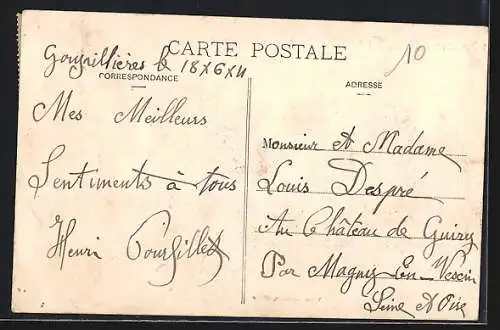 CARTE POSTALE
10
le 18 X 6 X 11
CORRESPONDANCE
ADRESSE
Mes Meilleurs
Sentiments à tous
Henri
Monsieur et Madame
Louis Despré
Au Château de Guiry
Par Magny-En-Vexin
Seine et Oise